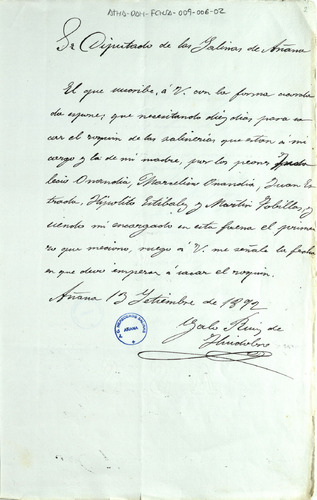 ATHA-DAH-FCHZ-009-006-02
Sr Diputado de las Salinas de Añana
El que suscribe, á V. con la forma acorda
da espone, que necesitando diez dias para sa
car el roquin de las salinerias que estan á mi
cargo y la de mi madre, por los peones
lecio Onandia, Marcelino Onandia, Juan Es
trada, Hipolito Estibalez y Martin Tobillas, y
siendo mi encargado en esta faena el prime
ro que menciono, ruego á V. me señale la fecha
en que devo empezar á sacar el roquin.
Añana 13 Setiembre de 1892
Galo Ruiz de
Huidobro
AÑANA